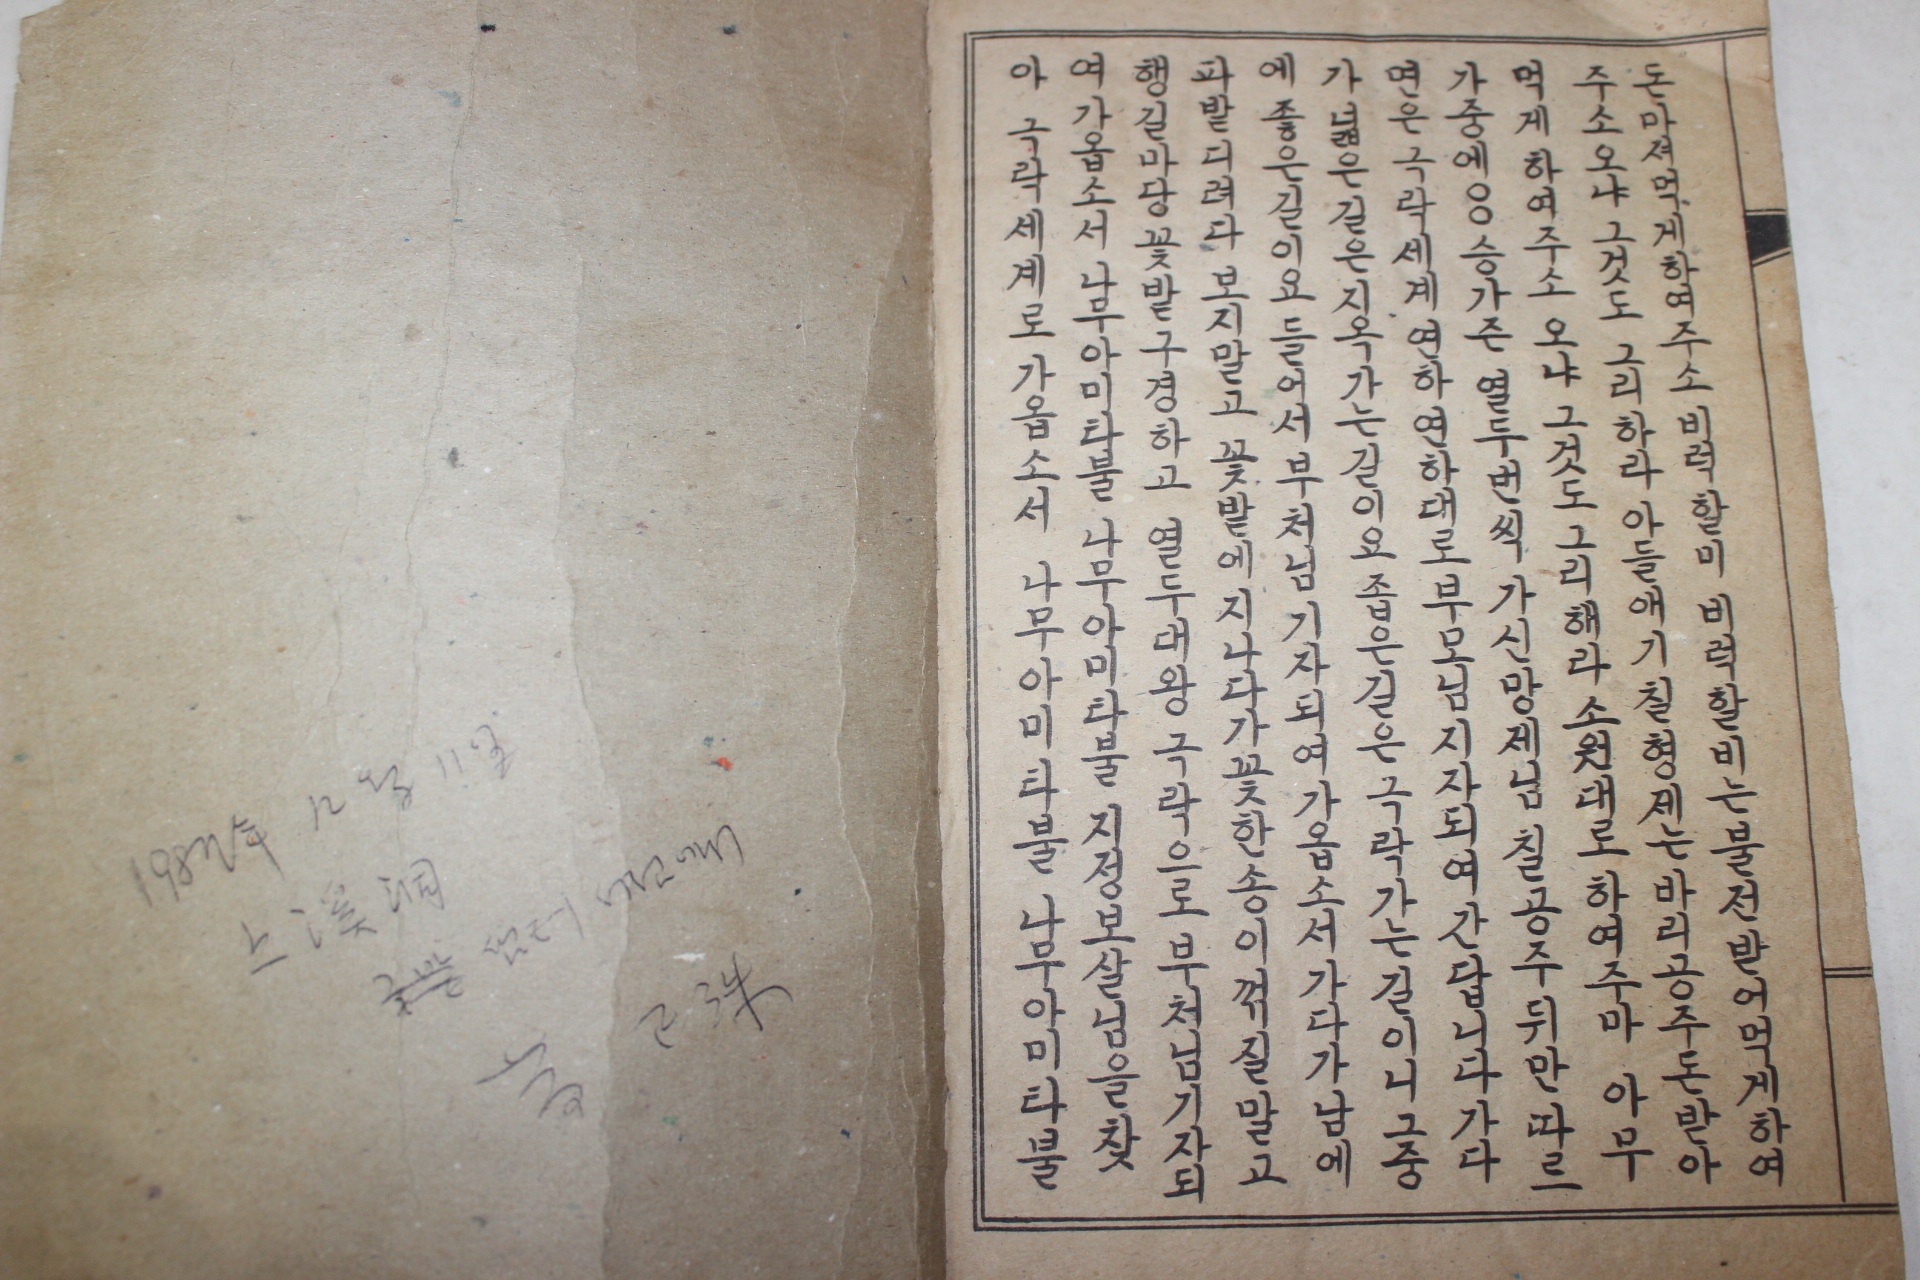 돈마져먹게하여주소 비럭할미 비럭할비는불전받어먹게하여
주소오냐 그것도 그리하라 아들애기칠형제는바리공주돈받아
먹게하여주소 오냐 그것도그리해라소원대로하여주마 아부
가중에응승가준 열두번씩 가신망제님 칠공주뒤만따르
면은극락세계 연하연하대로부모님지자되여간답니다가다
가 넓은길은지옥가는길이요 좁은길은극락가는길이니 그중
에 좋은길이요 들어서부처님기자되여가옵소서가다가남에
파밭디려다 보지말고 꽃밭에지나다가꽃한송이꺽질말고
행길마당꽃밭구경하고 열두대왕극락으로부처님기자되
여가옵소서 나무아미타불 나무아미타불 지정보살님을찾
아 극락세계로가옵소서 나무아미타불 나무아미타불
12월 11일
上溪洞